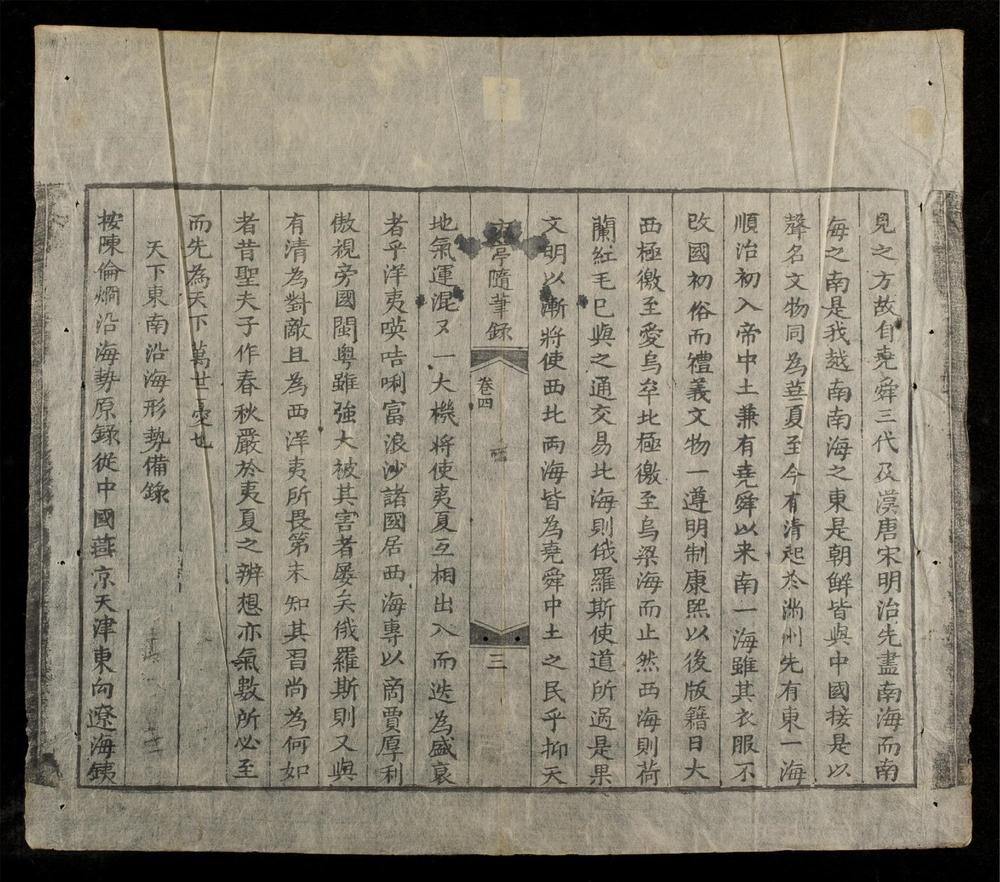 見之方故自堯舜三代及漢唐宋明治先盡南海而南
海之南是我越南南海之東是朝鮮皆與中國接是以
聲名文物同為華夏至今有清起於滿州先有東一海
順治初入帝中土兼有堯舜以來南一海雖其衣服不
改國初俗而禮義文物一遵明制康熙以後版籍日大
西極徼至愛烏罕北極徼至烏梁海而止然西海則荷
蘭紅毛已與之通交易北海則俄羅斯使道所過是果
文明以漸將使西北兩海皆為堯舜中土之民乎抑天
亭隨筆錄
卷四
三
地氣運混又一大機將使夷夏互相出入而迭為盛衰
者乎洋夷𠸄咭唎富浪沙諸國居西海專以商賈厚利
傲視旁國閩粵雖強大被其害者屡矣俄羅斯則又與
有清為對敵且為西洋夷所畏第未知其習尚為何如
者昔聖夫子作春秋嚴於夷夏之辨想亦氣數所必至
而先為天下萬世憂也
天下東南沿海形勢備錄
按陳倫烱沿海勢原錄從中國燕京天津東向遼海鉄